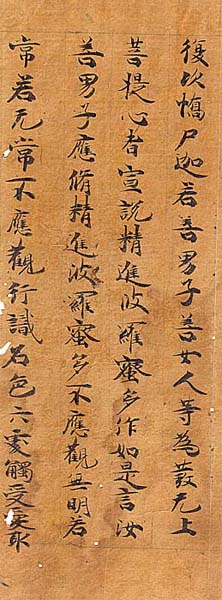 復次憍尸迦若善男子善女人等為發无上
菩提心者宣說精進波羅蜜多作如是言汝
善男子應脩精進波羅蜜多不應觀無明若
常若无常不應觀行識名色六處觸受愛取